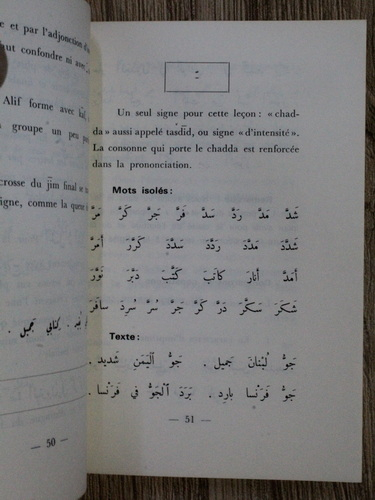 e et par l'adjonction d'u
aut confondre ni avec
Alif forme avec
groupe un peu
crosse du jim final se
igne, comme la queue
— 50 —
Un seul signe pour cette leçon : « chad-
da » aussi appelé tasdīd, ou signe « d'intensité ».
La consonne qui porte le chadda est renforcée
dans la prononciation.
Mots isolés :
شَدَّ مَدَّ رَدَّ سَدَّ فَرَّ جَرَّ كَرَّ مَرَّ
شَدَّدَ مَدَّدَ رَدَّدَ سَدَّدَ كَرَّرَ أَمَرَّ
أَمَدَّ أَنارَ كاتَبَ كَتَّبَ دَبَّرَ نَوَّرَ
شَكَرَ سَكَّرَ دَرَّ كَرَّ جَرَّ سُرَّ سُرِدَ سافَرَ
Texte :
جَوُّ لُبْنانَ جَميل . جَوُّ ٱلْيَمَنِ شَديد .
جَوُّ فَرَنْسا بارِد . بَرَدَ ٱلْجَوُّ في فَرَنْسا .
— 51 —